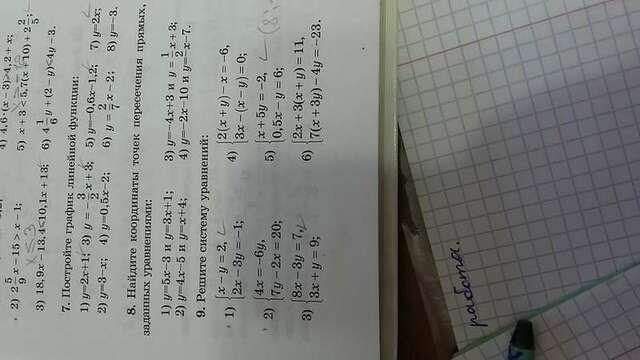 4) 4,6·(x−3)⩾4,2+x;
2) 2 5/9 x−15 > x−1;
5) x+3<5,7(x+10)+2 2/5;
x⩽3
3) 18,9x−13,4⩽10,1x+13;
6) 4 1/6 y+(2−y)⩽4y−3.
7. Постройте график линейной функции:
1) y=2x+1; 3) y=−3/2 x+3; 5) y=−0,6x−1,2; 7) y=2x;
2) y=3−x; 4) y=0,5x−2; 6) y=2/7 x−2; 8) y=−3.
8. Найдите координаты точек пересечения прямых,
заданных уравнениями:
1) y=5x−3 и y=3x+1; 3) y=−4x+3 и y=1/2 x+3;
2) y=4x−5 и y=x+4; 4) y=−2x−10 и y=2x−7.
9. Решите систему уравнений:
1) {x−y=2,
2x−3y=−1;
4) {2(x+y)−x=−6,
3x−(x−y)=0;
2) {4x=−6y,
7y−2x=20;
5) {x+5y=−2,
0,5x−y=6;
(8;
3) {8x−3y=7,
3x+y=9;
6) {2x+3(x+y)=11,
7(x+3y)−4y=−23.
работа.